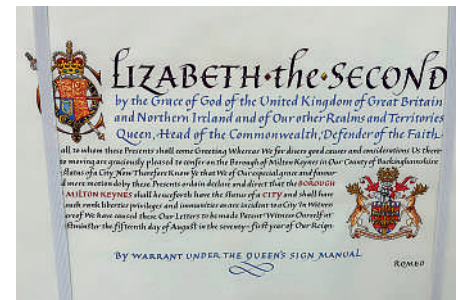 ELIZABETH·the·SECOND
by the Grace of God of the United Kingdom of Great Britain
and Northern Ireland and of Our other Realms and Territories
Queen, Head of the Commonwealth, Defender of the Faith
all to whom these Presents shall come Greeting Whereas We for divers good causes and considerations Us there
to moving are graciously pleased to confer on the Borough of Milton Keynes in Our County of Buckinghamshire
Status of a City Now Therefore Know Ye that We of Our especial grace and favour
d mere motion do by these Presents ordain declare and direct that the BOROUGH
MILTON KEYNES shall henceforth have the Status of a CITY and shall have
such rank liberties privileges and immunities as are incident to a City In Witness
ereof We have caused these Our Letters to be made Patent Witness Ourself at
stminster the fifteenth day of August in the seventy-first year of Our Reign
BY WARRANT UNDER THE QUEEN'S SIGN MANUAL
ROMEO